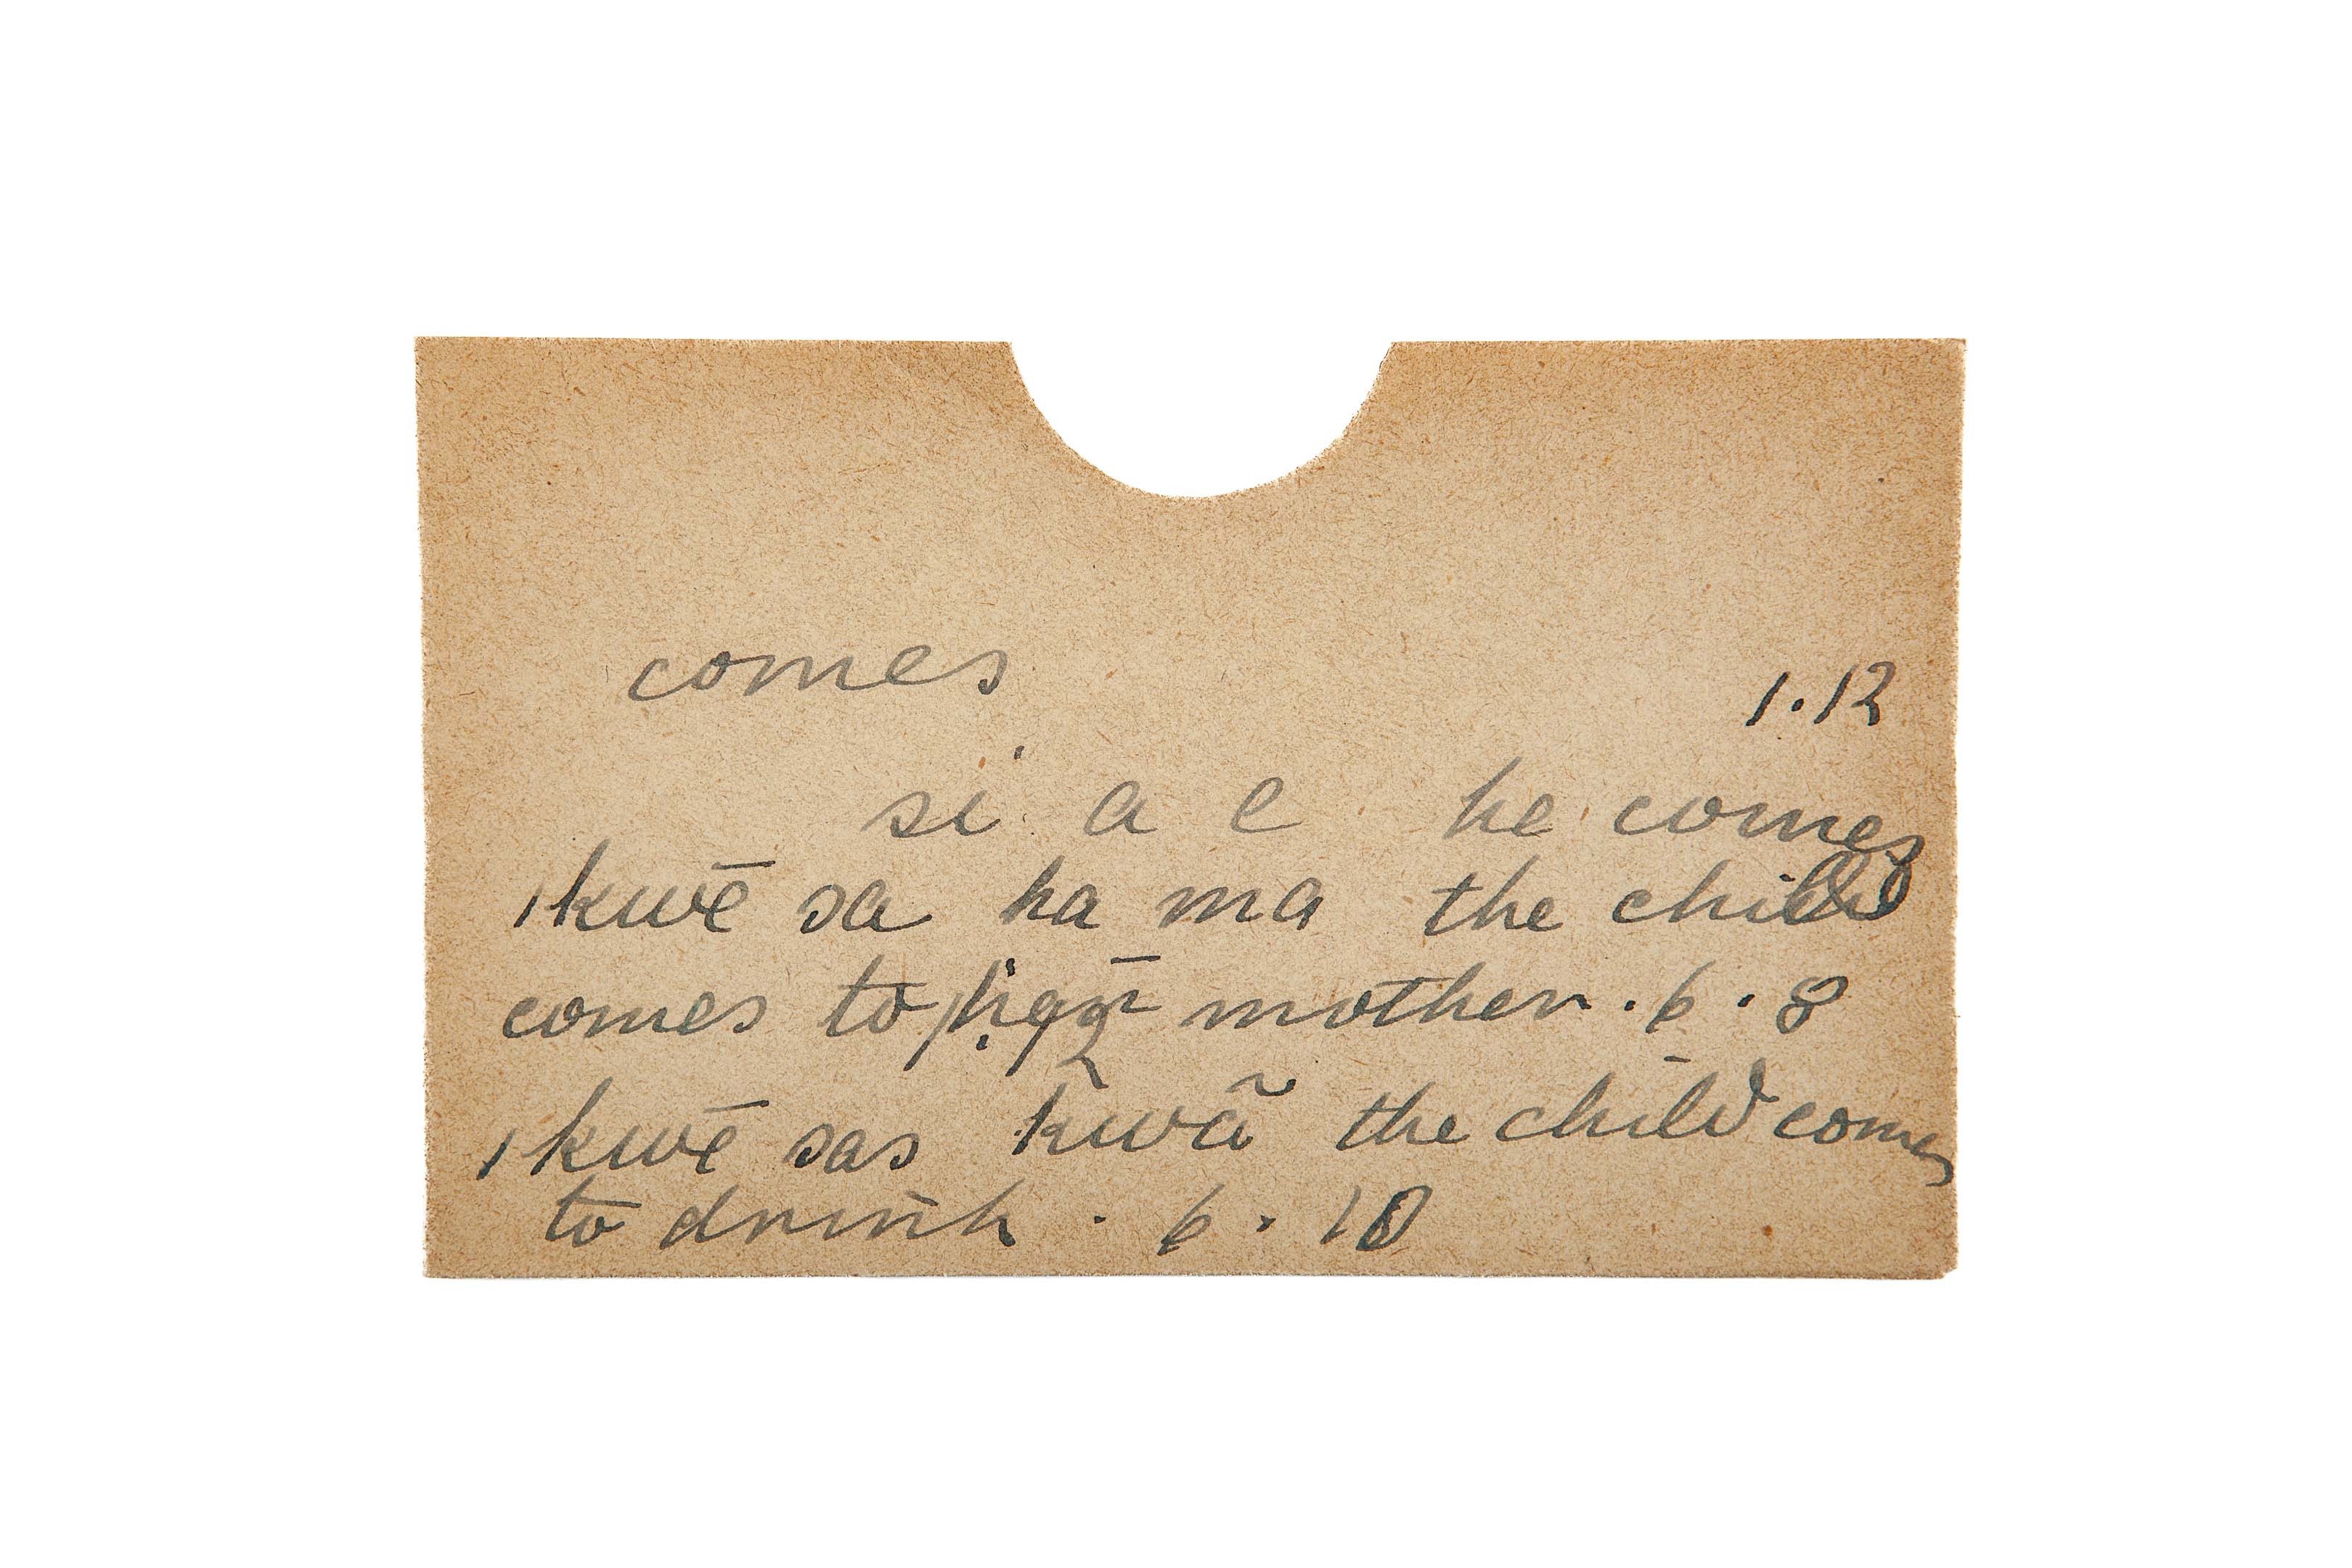 comes
1.12
si a e he comes
ıkwē sa ha ma the child
comes to mother . 6 . 8
ıkwē sas kwã the child comes
to drink . 6 . 10